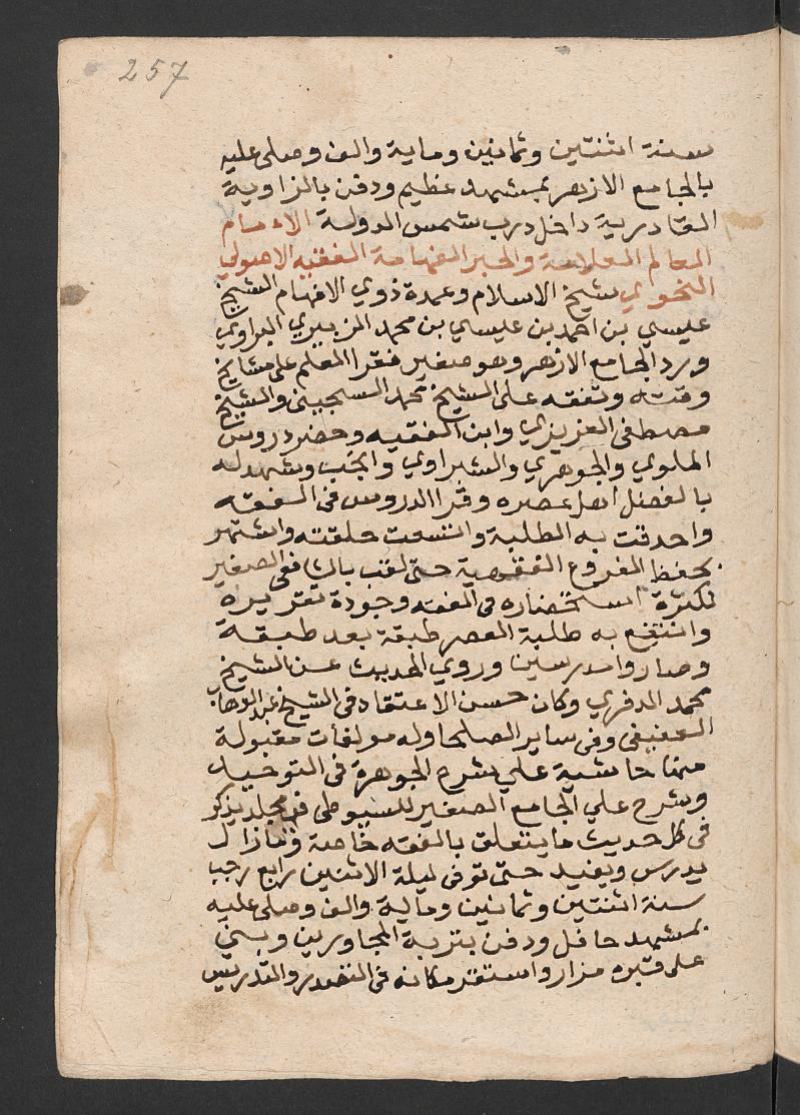 257
سنة اثنتين وثمانين وماية والف وصلى عليه
بالجامع الازهر بمشهد عظيم ودفن بالزاوية
القادرية داخل درب شمس الدولة الامام
العالم العلامة والحبر الفهامة الفقيه الاصولي
النحوي شيخ الاسلام وعمدة ذوي الافهام الشيخ
عيسي بن احمد بن عيسي بن محمد الزبيري البراوي
ورد الجامع الازهر وهو صغير فقرا العلم على مشايخ
وقته وتفقه على الشيخ محمد السجيني والشيخ
مصطفى العزيزي وابن الفقيه وحضر دروس
الملوي والجوهري والشبراوي وانجب وشهد له
بالفضل اهل عصره وقرا الدروس في الفقه
واحدقت به الطلبة واتسعت حلقته واشتهر
بحفظ الفروع الفقهية حتى لقب بالشافعي الصغير
لكثرة استحضاره في الفقه وجودة تقريره
وانتفع به طلبة العصر طبقة بعد طبقة
وصاروا مدرسين وروي الحديث عن الشيخ
محمد الدفري وكان حسن الاعتقاد في الشيخ عبد الوهاب
العفيفي وفي ساير الصلحا وله مولفات مقبولة
منها حاشية علي شرح الجوهرة في التوحيد
وشرح علي الجامع الصغير للسيوطي في مجلد يذكر
في كل حديث ما يتعلق بالفقه خاصة وما زال
يدرس ويفيد حتى توفي ليلة الاثنين رابع رجب
سنة اثنتين وثمانين وماية والف وصلى عليه
بمشهد حافل ودفن بتربة المجاورين وبني
على قبره مزار واستقر مكانه في التصدر والتدريس